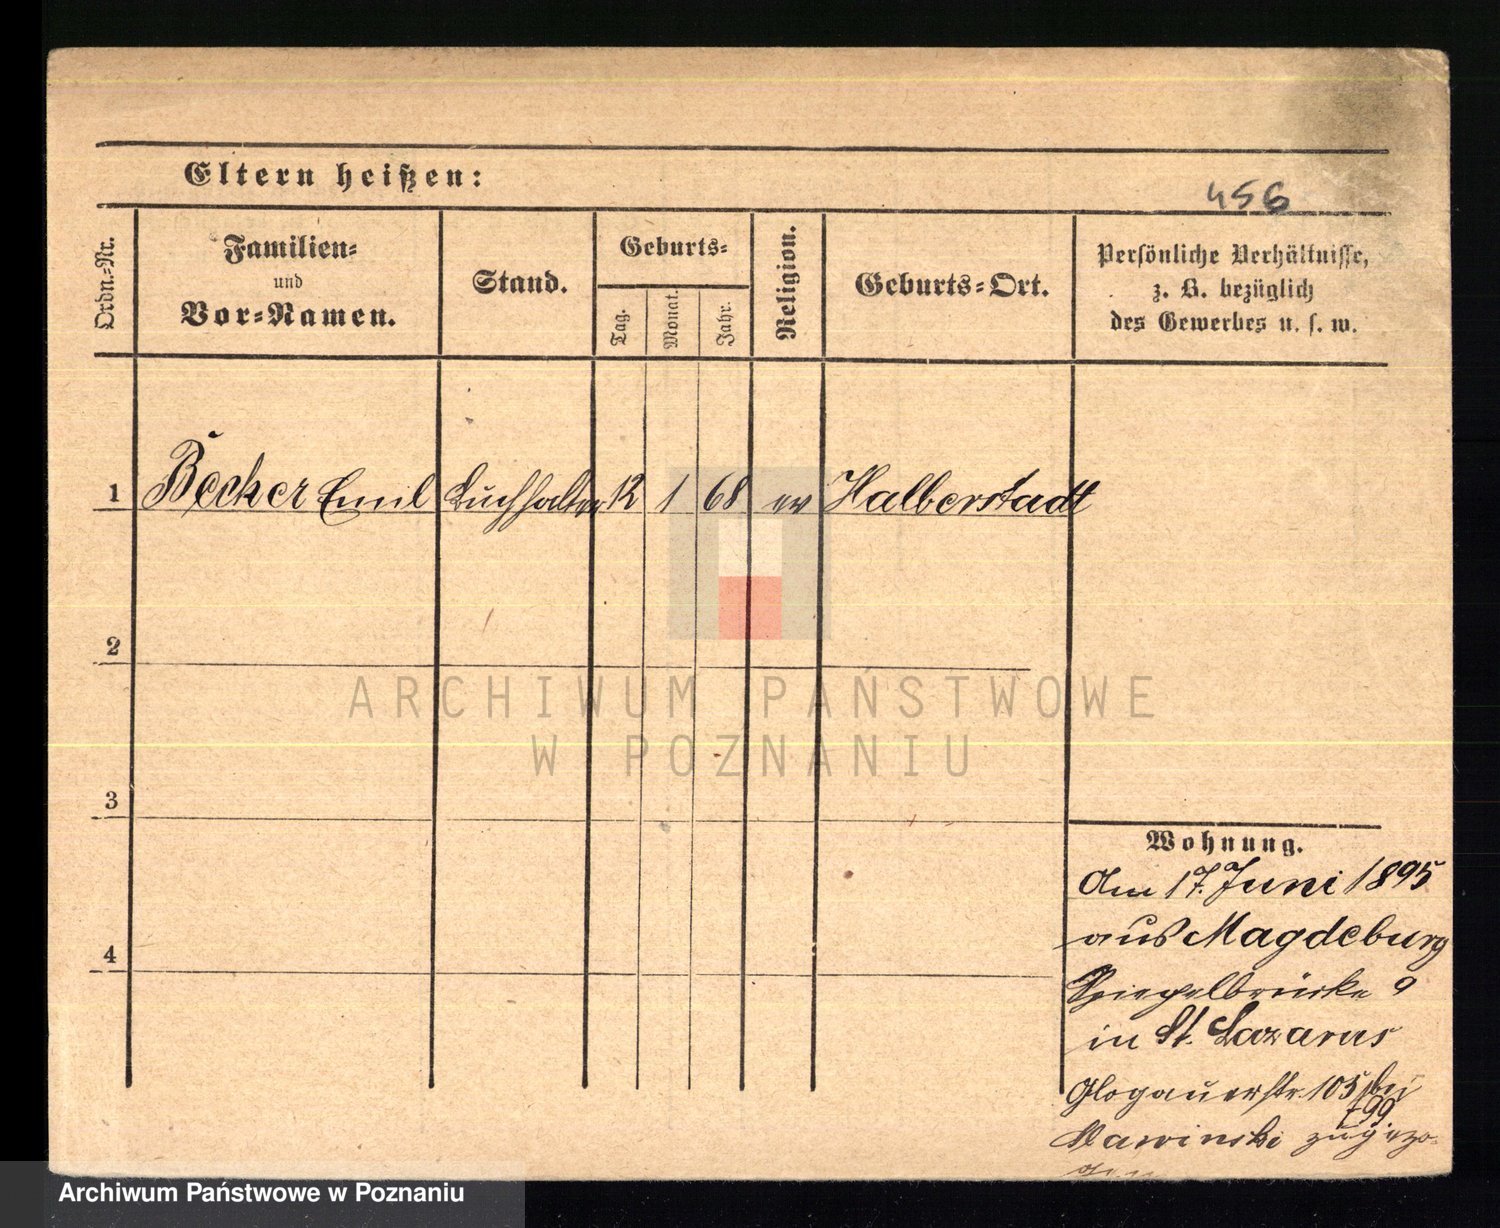 Eltern heißen:
456
Ordn.-Nr.
Familien-
und
Vor-Namen.
Stand.
Geburts-
Tag.
Monat.
Jahr.
Religion.
Geburts-Ort.
Persönliche Verhältnisse,
z. B. bezüglich
des Gewerbes u. s. w.
1 Becker Emil Buchhalter 12 1 68 ev Halberstadt
2
3
4
Wohnung.
Am 17. Juni 1895
aus Magdeburg
Spiegelbrücke 9
in St. Lazarus
Glogauerstr. 105 bei
zugezo-
gen
ARCHIWUM PAŃSTWOWE
W POZNANIU
Archiwum Państwowe w Poznaniu